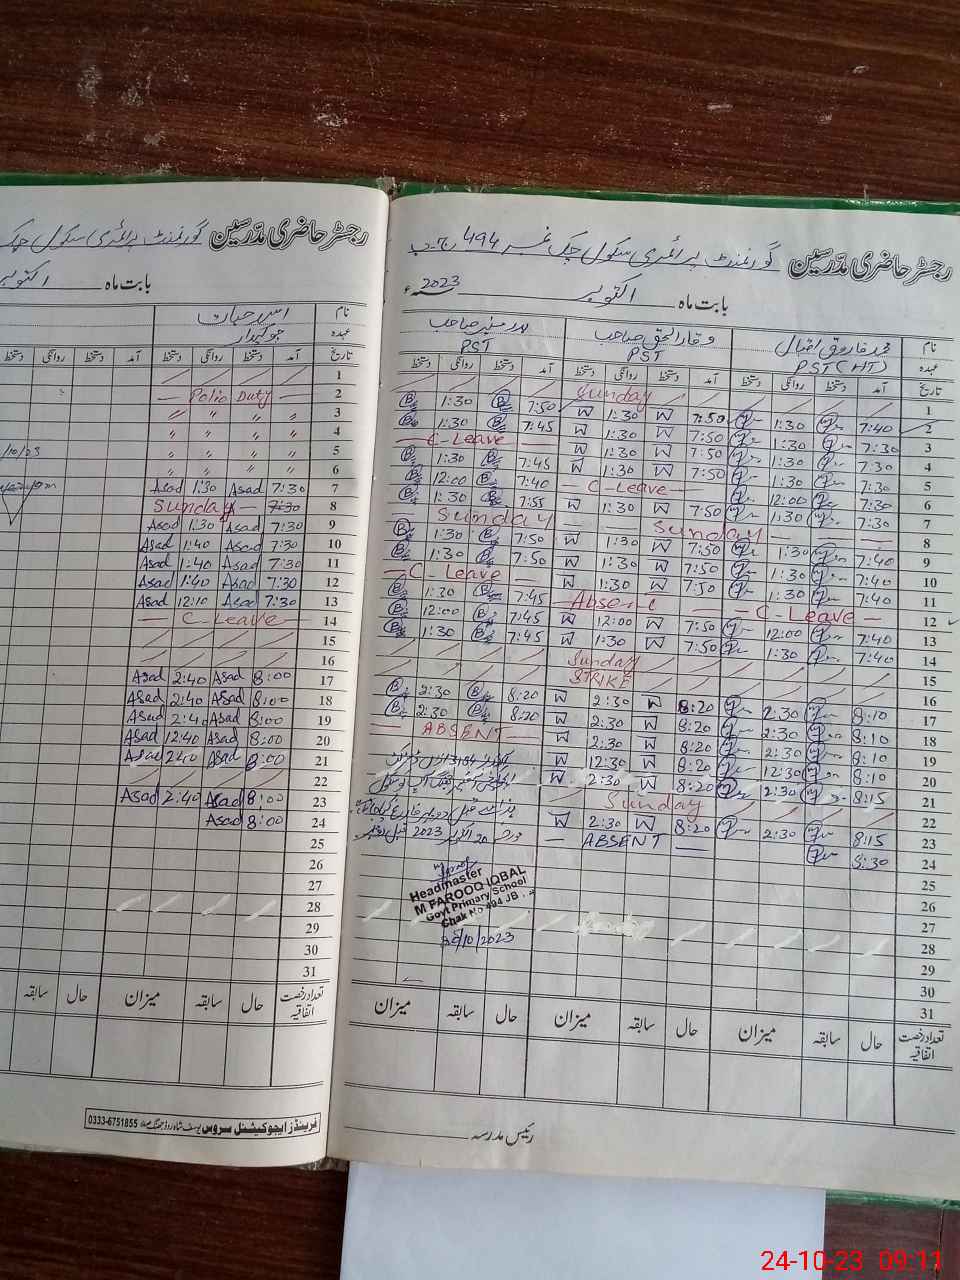 رجسٹر حاضری مدرسین گورنمنٹ پرائمری سکول چک نمبر 494 ج۔ب
بابت ماہ اکتوبر 2023ء
نام محمد فاروق اقبال وقار الحق صاحب
عہدہ PST (HT) PST PST
تاریخ آمد دستخط روانگی دستخط آمد دستخط روانگی دستخط آمد دستخط روانگی دستخط
1 Sunday
2 7:40 1:30 7:50 W 1:30 W 7:50 1:30
3 7:30 1:30 7:50 W 1:30 W 7:45 1:30
4 7:30 1:30 7:50 W 1:30 W C-Leave
5 7:30 1:30 7:50 W 1:30 W 7:45 1:30
6 7:30 12:00 C-Leave 7:40 12:00
7 7:30 1:30 7:50 W 1:30 W 7:55 1:30
8 Sunday Sunday
9 7:40 1:30 7:50 W 1:30 W 7:50 1:30
10 7:40 1:30 7:50 W 1:30 W 7:50 1:30
11 7:40 1:30 7:50 W 1:30 W C-Leave
12 C-Leave Absent 7:45 1:30
13 7:40 12:00 7:50 W 12:00 W 7:45 12:00
14 7:40 1:30 7:50 W 1:30 W 7:45 1:30
15 Sunday
16 STRIKE
17 8:10 2:30 8:20 W 2:30 W 8:20 2:30
18 8:10 2:30 8:20 W 2:30 W 8:20 2:30
19 8:10 2:30 8:20 W 2:30 W ABSENT
20 8:10 12:30 8:20 W 12:30 W
21 8:15 2:30 8:20 W 2:30 W
22 Sunday
23 8:15 2:30 8:20 W 2:30 W
24 8:30 ABSENT
25
26
27
28
29
30
31
20 اکتوبر 2023
Headmaster
M FAROOQ IQBAL
Govt Primary School
Chak No 494 JB
/10/2023
تعداد رخصت اتفاقیہ حال سابقہ میزان حال سابقہ میزان حال سابقہ میزان
رئیس مدرسہ
رجسٹر حاضری مدرسین گورنمنٹ پرائمری سکول چک
بابت ماہ اکتوبر
نام اسد حیات
عہدہ چوکیدار
تاریخ آمد دستخط روانگی دستخط آمد دستخط روانگی دستخط
1
2 Polio Duty
3 〃 〃 〃 〃
4 〃 〃 〃 〃
5 〃 〃 〃 〃 /10/23
6 〃 〃 〃 〃
7 7:30 Asad 1:30 Asad
8 7:30 Sunday
9 7:30 Asad 1:30 Asad
10 7:30 Asad 1:40 Asad
11 7:30 Asad 1:40 Asad
12 7:30 Asad 1:40 Asad
13 7:30 Asad 12:10 Asad
14 C-Leave
15
16
17 8:00 Asad 2:40 Asad
18 8:00 Asad 2:40 Asad
19 8:00 Asad 2:40 Asad
20 8:00 Asad 12:40 Asad
21 8:00 Asad 2:40 Asad
22
23 8:00 Asad 2:40 Asad
24 8:00 Asad
25
26
27
28
29
30
31
تعداد رخصت اتفاقیہ حال سابقہ میزان حال سابقہ
فرینڈز ایجوکیشنل سروس یوسف شاہ روڈ جھنگ صدر 0333-6751855
24-10-23 09:11